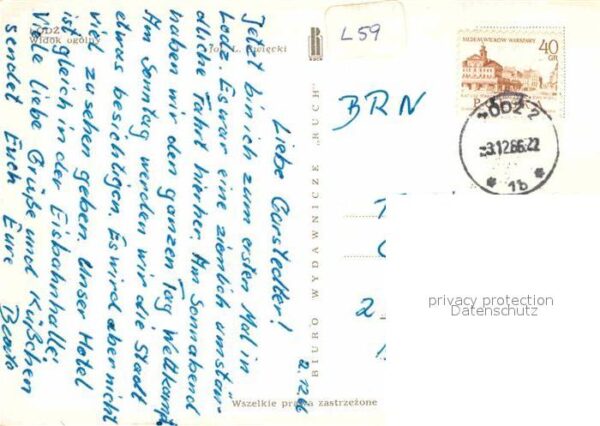 ŁÓDŹ
Widok ogólny
Fot. L. Święcki
RUCH
L59
SIEDEM WIEKÓW WARSZAWY
40
GR
ŁÓDŹ 2
-3.12.66.22
* 1b *
BRN
BIURO WYDAWNICZE „RUCH"
2.12.66
Liebe Gorstedler!
Jetzt bin ich zum ersten Mal in
Lodz. Es war eine ziemlich umstän-
dliche Fahrt hierher. Am Sonnabend
haben wir den ganzen Tag Wettkampf
Am Sonntag werden wir die Stadt
etwas besichtigen. Es wird aber nicht
viel zu sehen geben. Unser Hotel
ist gleich in der Eisbahnhalle.
Viele liebe Grüße und Küßchen
sendet Euch Eure Beate
2
Wszelkie prawa zastrzeżone
privacy protection
Datenschutz